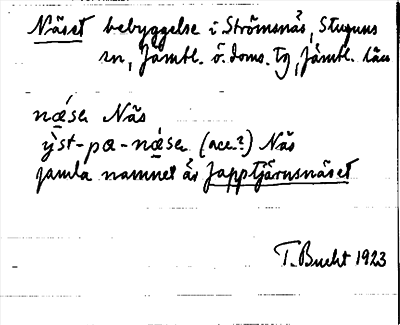 Näset bebyggelse i Strömsnäs, Stuguns
sn, Jämtl. ö. doms. tg, Jämtl. län
næ̀sa Näs
ỳst-pa-næ̀sa (acc?) Näs
gamla namnet är Japptjärnsnäset
T. Bucht 1923